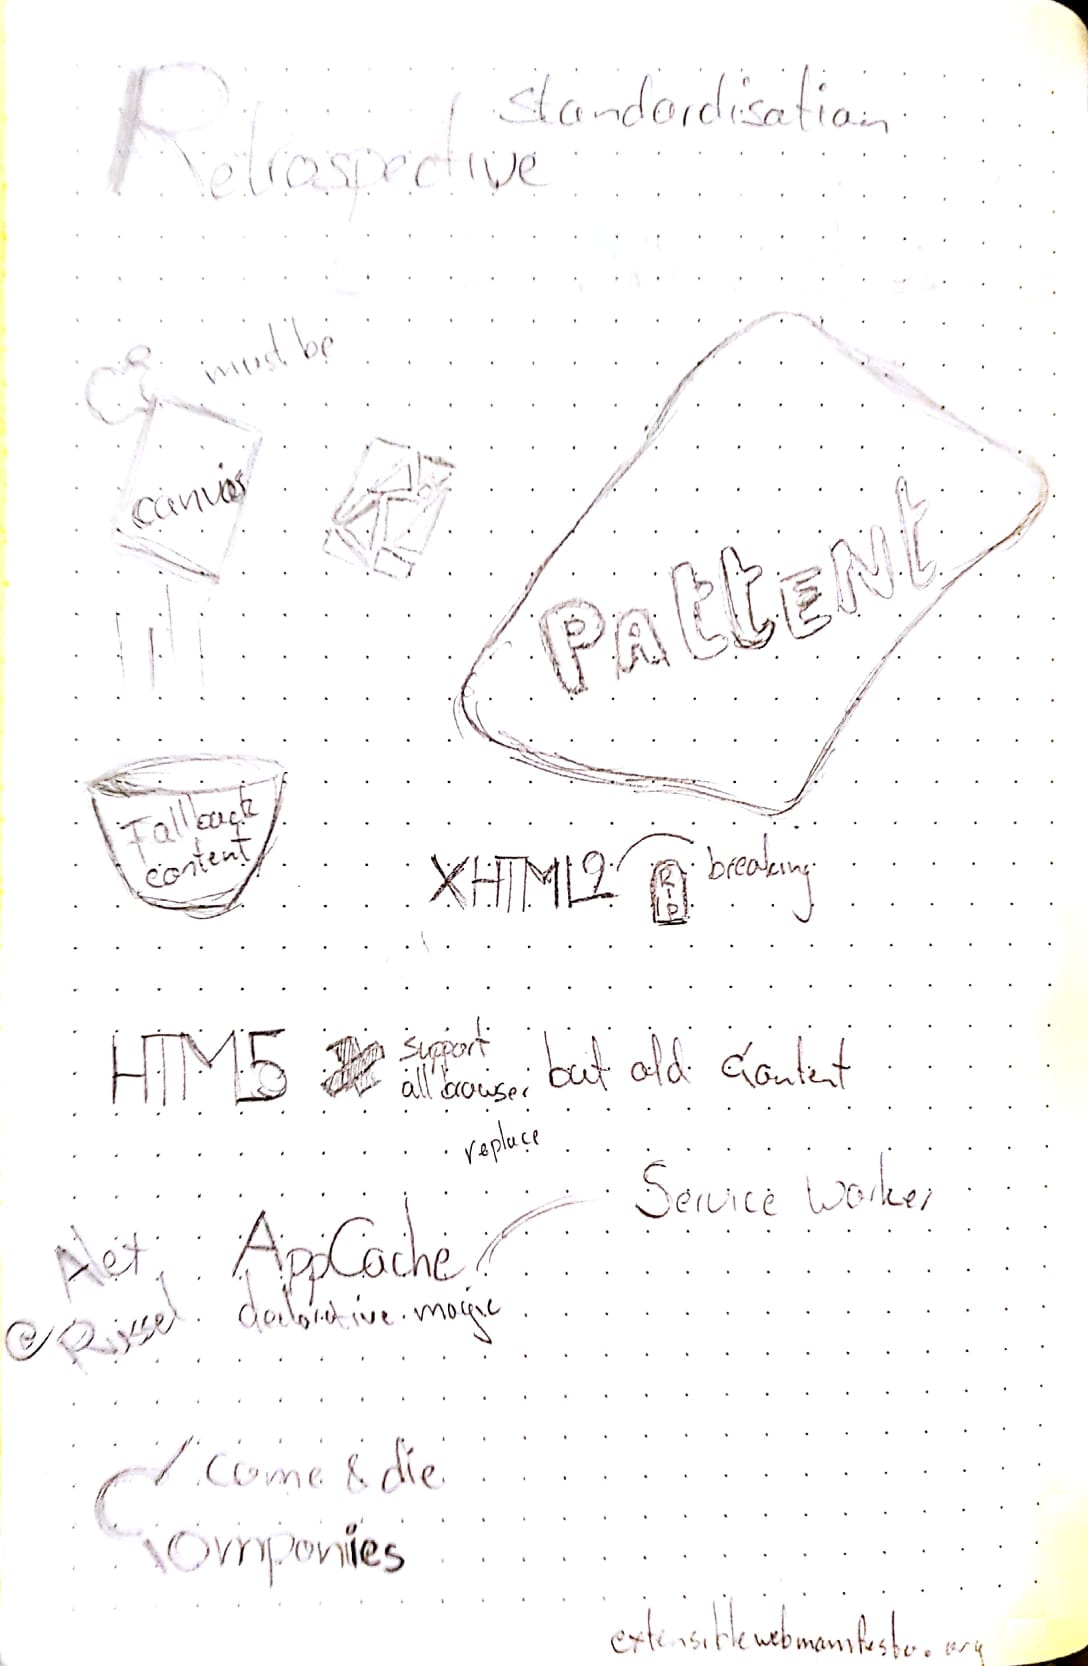 Standardisation
Retrospective
must be
canvas
PAttENt
Fallback
content
XHTML2
RIP
breaking
HTM5
support
all browser
but old content
replace
Service Worker
Alex
AppCache
@
declarative magic
Come & die
Companies
extensiblewebmanifesto.org